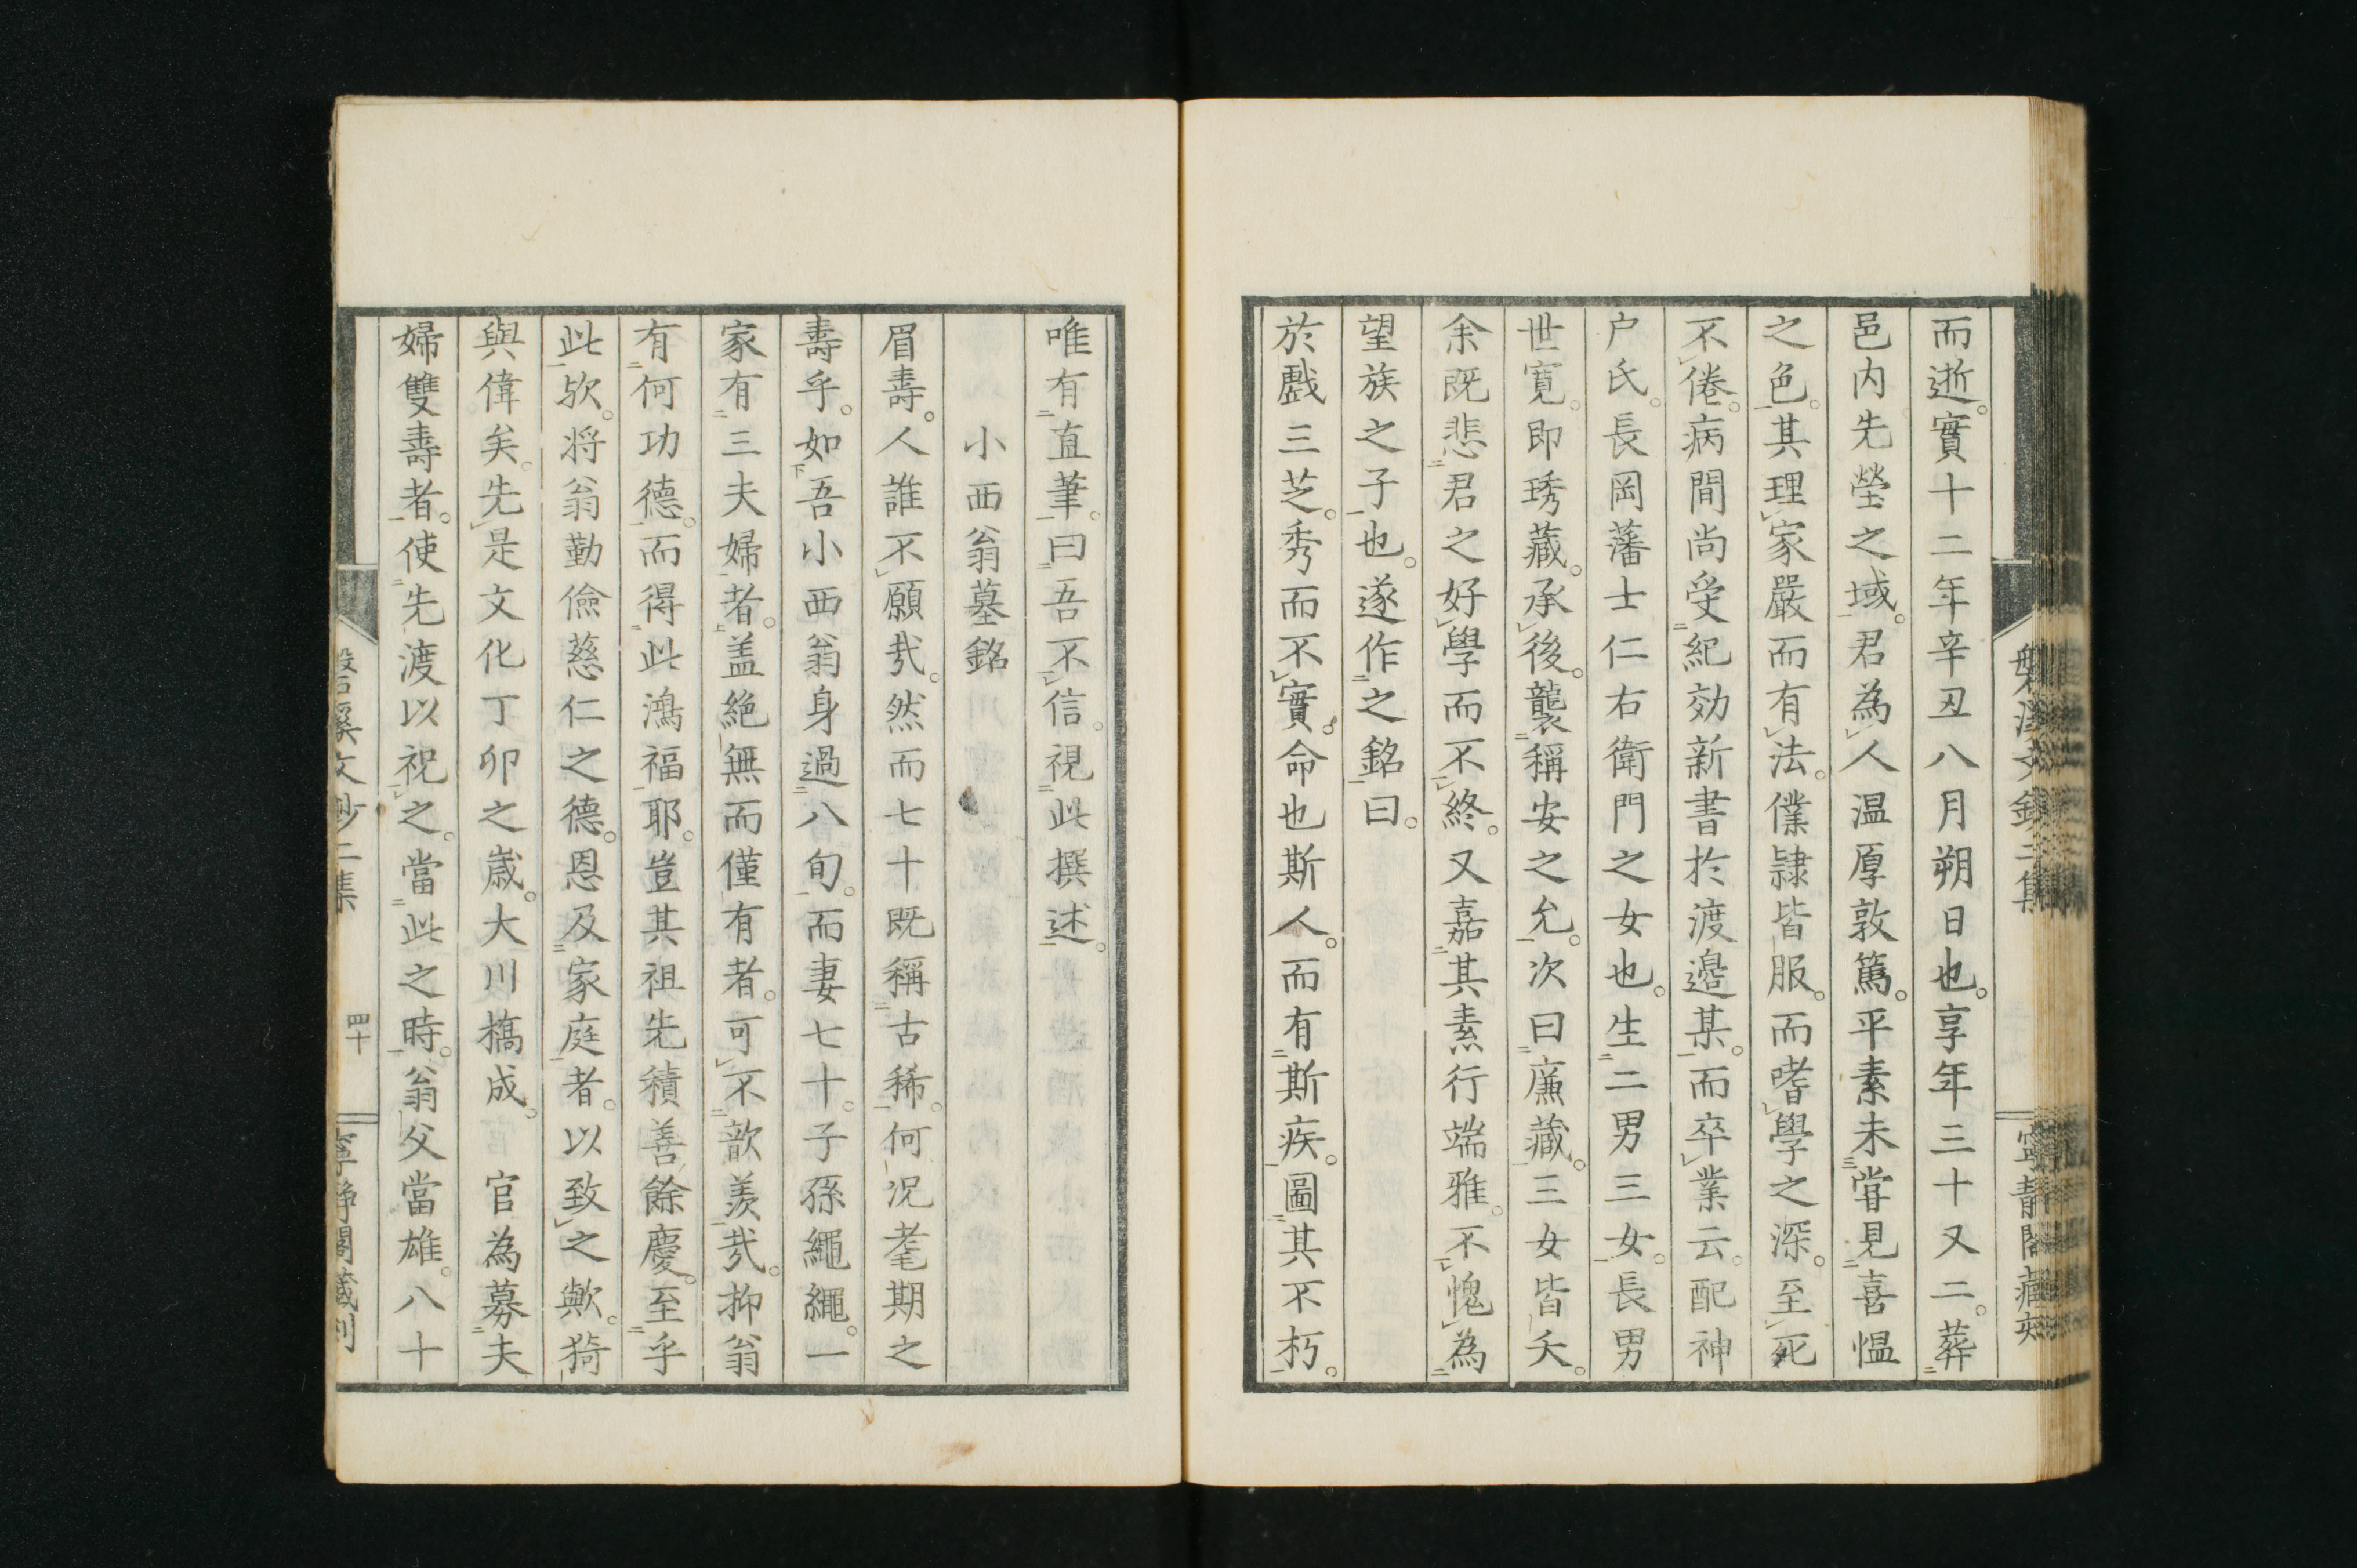 而逝。實十二年辛丑八月朔日也。享年三十又二。葬
邑内先塋之域。君為人温厚敦篤。平素未嘗見喜愠
之色。其理家嚴而有法。僕隷皆服。而嗜學之深。至死
不倦。病間尚受紀効新書於渡邉某。而卒業云。配神
户氏。長岡藩士仁右衛門之女也。生二男三女。長男
世寛。即琇藏。承後。襲稱安之允。次曰廉藏。三女皆夭。
余既悲君之好學而不終。又嘉其素行端雅。不愧為
望族之子也。遂作之銘曰。
於戲三芝。秀而不實。命也斯人。而有斯疾。圖其不朽。
唯有直筆。曰吾不信。視此撰述。
小西翁墓銘
眉壽。人誰不願㢤。然而七十既稱古稀。何況耄期之
壽乎。如吾小西翁身過八旬。而妻七十。子孫繩繩。一
家有三夫婦者。盖絶無而僅有者。可不歆羡㢤。抑翁
有何功德。而得此鴻福耶。豈其祖先積善餘慶。至乎
此欤。将翁勤儉慈仁之德。恩及家庭者。以致之歟。猗
與偉矣。先是文化丁卯之歳。大川橋成。官為募夫
婦雙壽者。使先渡以祝之。當此之時。翁父當雄。八十
文鈔二集
四十